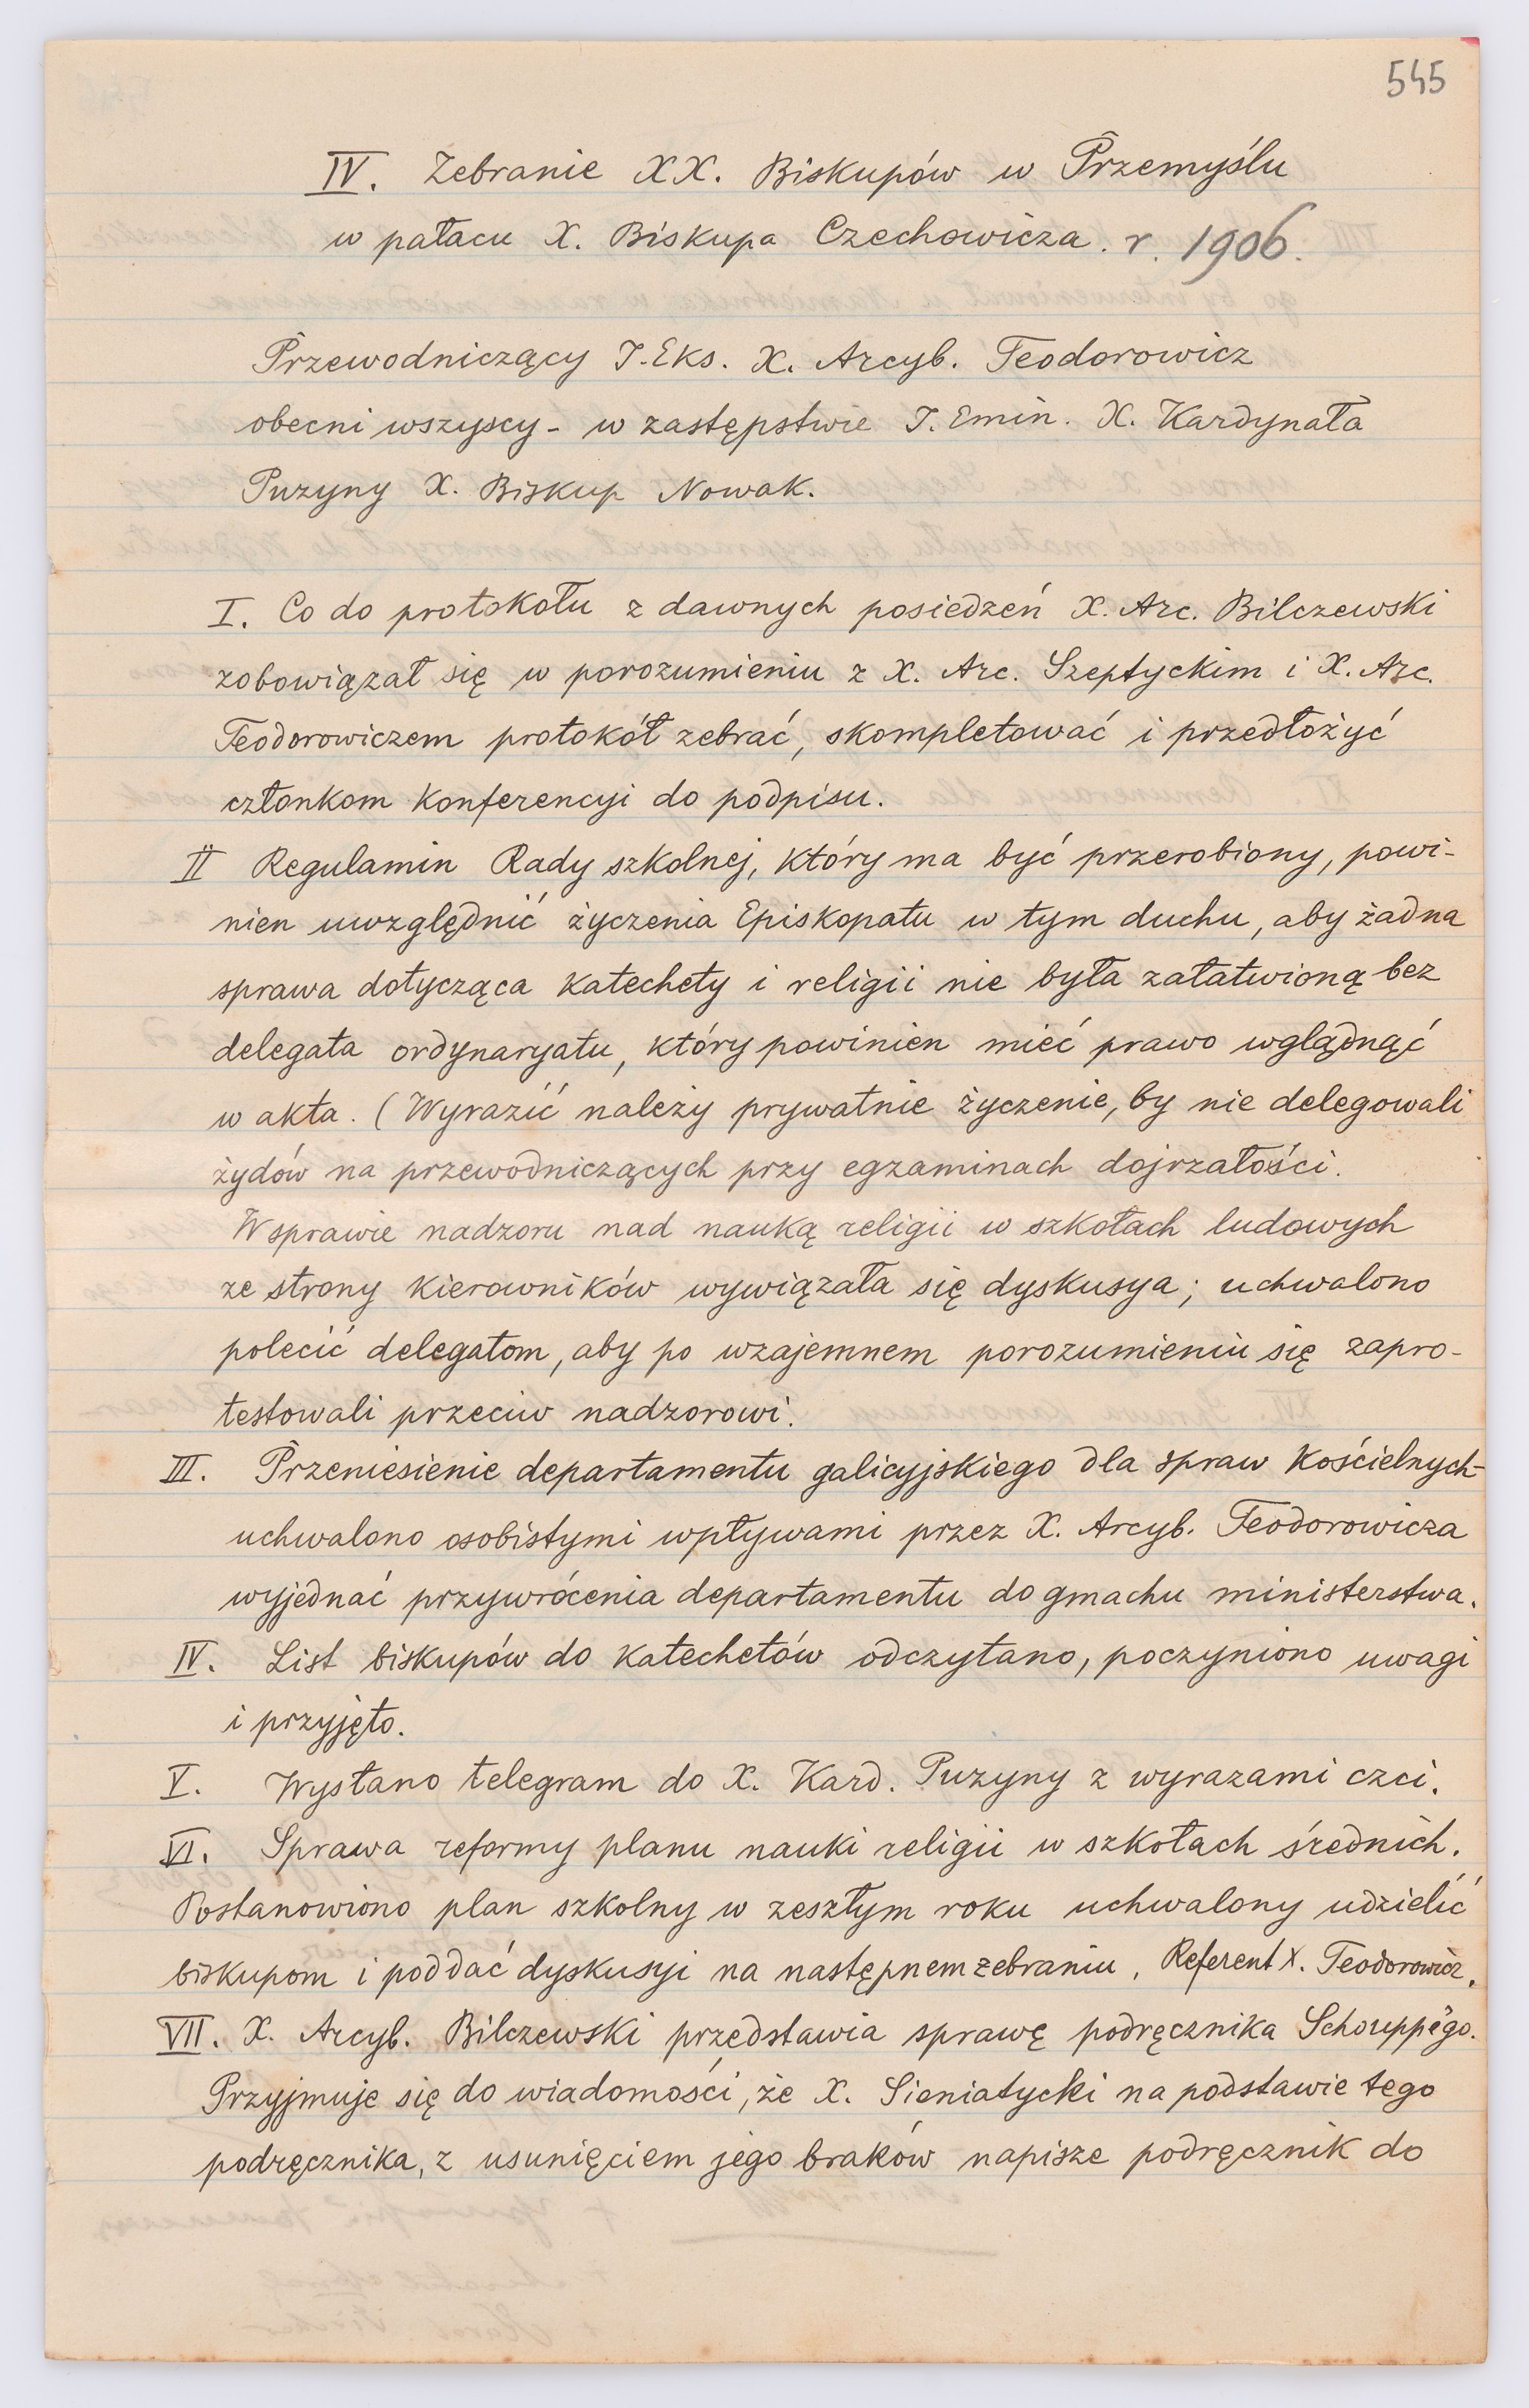 545
IV. Zebranie XX. Biskupów w Przemyślu
w pałacu X. Biskupa Czechowicza. r. 1906.
Przewodniczący J. Eks. X. Arcyb. Teodorowicz
obecni wszyscy - w zastępstwie J. Emin. X. Kardynała
Puzyny X. Biskup Nowak.
I. Co do protokołu z dawnych posiedzeń X. Arc. Bilczewski
zobowiązał się w porozumieniu z X. Arc. Szeptyckim i X. Arc.
Teodorowiczem protokół zebrać, skompletować i przedłożyć
członkom konferencyi do podpisu.
II Regulamin Rady szkolnej, który ma być przerobiony, powi-
nien uwzględnić życzenia Episkopatu w tym duchu, aby żadna
sprawa dotycząca katechety i religii nie była załatwioną bez
delegata ordynaryatu, który powinien mieć prawo wglądnąć
w akta. (Wyrazić należy prywatnie życzenie, by nie delegowali
żydów na przewodniczących przy egzaminach dojrzałości.
W sprawie nadzoru nad nauką religii w szkołach ludowych
ze strony kierowników wywiązała się dyskusya; uchwalono
polecić delegatom, aby po wzajemnem porozumieniu się zapro-
testowali przeciw nadzorowi.
III. Przeniesienie departamentu galicyjskiego dla spraw kościelnych-
uchwalono osobistymi wpływami przez X. Arcyb. Teodorowicza
wyjednać przywrócenia departamentu do gmachu ministerstwa.
IV. List biskupów do katechetów odczytano, poczyniono uwagi
i przyjęto.
V. Wysłano telegram do X. Kard. Puzyny z wyrazami czci.
VI. Sprawa reformy planu nauki religii w szkołach średnich.
Postanowiono plan szkolny w zeszłym roku uchwalony udzielić
biskupom i poddać dyskusyi na następnem zebraniu. Referent X. Teodorowicz.
VII. X. Arcyb. Bilczewski przedstawia sprawę podręcznika Schouppégo.
Przyjmuje się do wiadomości, że X. Sieniatycki na podstawie tego
podręcznika, z usunięciem jego braków napisze podręcznik do